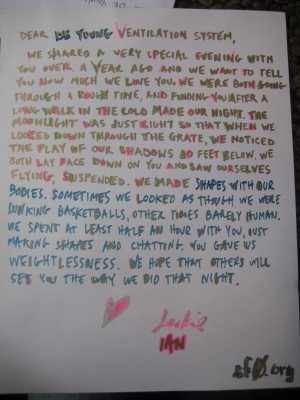 DEAR YOUNG VENTILATION SYSTEM,
WE SHARED A VERY SPECIAL EVENING WITH
YOU OVER A YEAR AGO AND WE WANT TO TELL
YOU HOW MUCH WE LOVE YOU. WE WERE BOTH GOING
THROUGH A ROUGH TIME, AND FINDING YOU AFTER A
LONG WALK IN THE COLD MADE OUR NIGHT. THE
MOONLIGHT WAS JUST RIGHT SO THAT WHEN WE
LOOKED DOWN THROUGH THE GRATE, WE NOTICED
THE PLAY OF OUR SHADOWS 20 FEET BELOW. WE
BOTH LAY FACE DOWN ON YOU AND SAW OURSELVES
FLYING, SUSPENDED. WE MADE SHAPES WITH OUR
BODIES. SOMETIMES WE LOOKED AS THOUGH WE WERE
DUNKING BASKETBALLS, OTHER TIMES BARELY HUMAN.
WE SPENT AT LEAST HALF AN HOUR WITH YOU, JUST
MAKING SHAPES AND CHATTING. YOU GAVE US
WEIGHTLESSNESS. WE HOPE THAT OTHERS WILL
SEE YOU THE WAY WE DID THAT NIGHT.
IAN
sf0.org